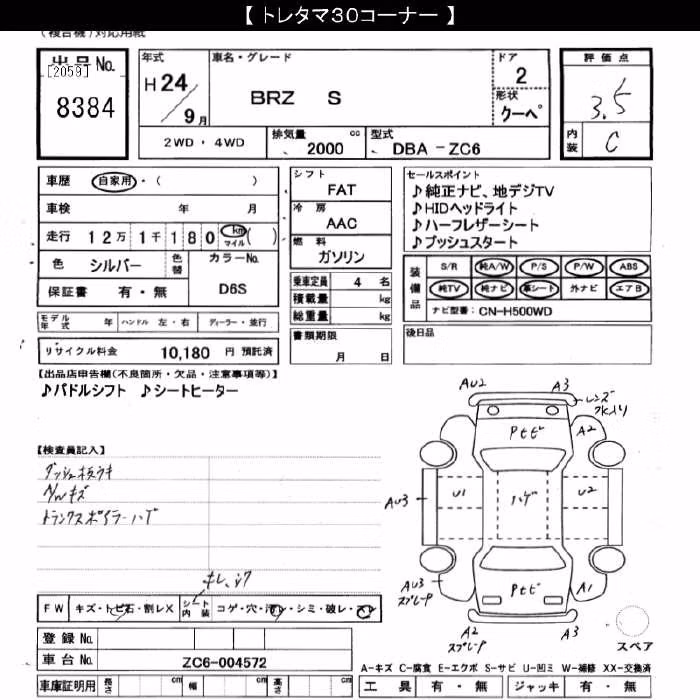 【 トレタマ３０コーナー 】
(複合機)対応用紙
出品No.
[2059]
8384
年式
H 24
9月
車名・グレード
BRZ S
ドア
2
形状
クーペ
評価点
3.5
内装
C
2WD・4WD
排気量 cc
2000
型式
DBA -ZC6
車歴 自家用・( )
車検 年 月
走行 12万 1千 180 km マイル ( )
色 シルバー 色替
カラーNo.
D6S
保証書 有・無
シフト
FAT
冷房
AAC
燃料
ガソリン
乗車定員 4 名
積載量 kg
総重量 kg
セールスポイント
♪純正ナビ、地デジTV
♪HIDヘッドライト
♪ハーフレザーシート
♪プッシュスタート
装備品
S/R 純A/W P/S P/W ABS
純TV 純ナビ 革シート 外ナビ エアB
ナビ型番: CN-H500WD
モデル年式 年 ハンドル 左・右 ディーラー・並行
リサイクル料金 10,180 円 預託済
書類期限
月 日
後日品
【出品店申告欄(不良箇所・欠品・注意事項等)】
♪パドルシフト ♪シートヒーター
【検査員記入】
A/Wキズ
トランクスポイラーハゲ
AU2 A3
レンズ
A2
Pトビ
AU3 U1 ハゲ U2
AU3
スプレーP
Pトビ
A1
A2
スプレーP
A3
スペア
FW キズ・トビ石・割レX シート内装 コゲ・穴・汚レ・シミ・破レ・スレ
登録 No.
車台 No. ZC6-004572
車庫証明用 長さ cm 幅 cm 高さ cm
A-キズ C-腐食 E-エクボ S-サビ U-凹ミ W-補修 XX-交換済
工具 有・無 ジャッキ 有・無